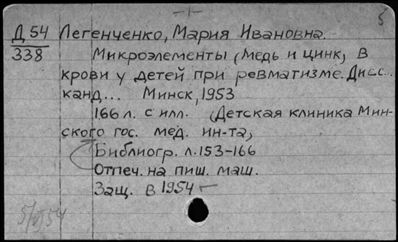 -1-
5
Д 54 Легенченко, Мария Ивановна.
338 Микроэлементы (медь и цинк) в
крови у детей при ревматизме. Дисс...
канд... Минск, 1953
166 л. с илл. (Детская клиника Мин-
ского гос. мед. ин-та)
Библиогр. л. 153-166
Отпеч. на пиш. маш.
Защ. в 1954